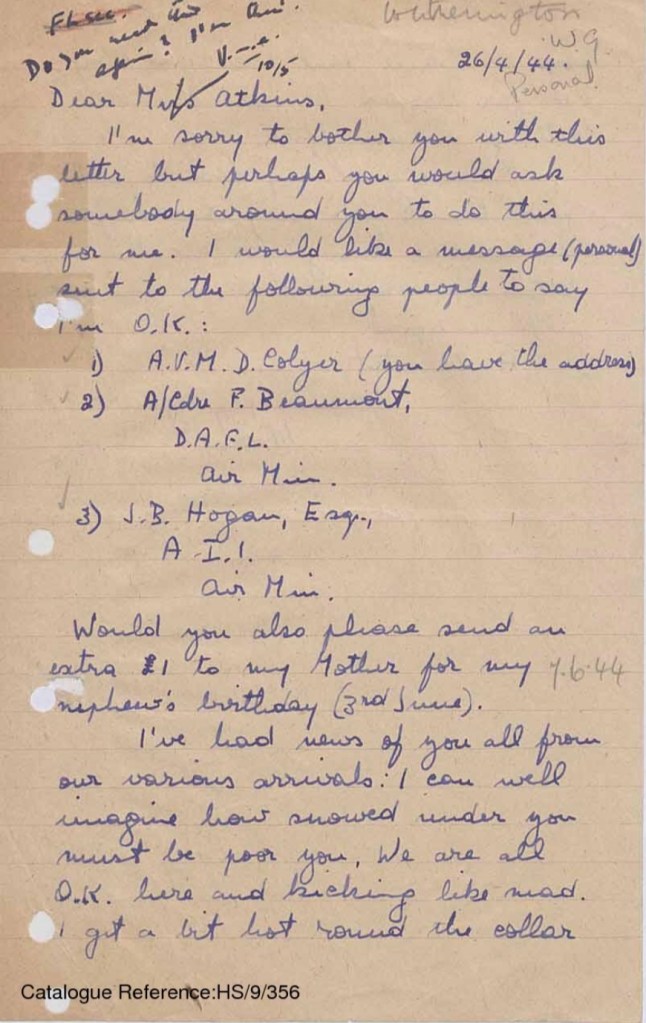 Witherington
W.G.
Personal.
Do you need this
again?
V.M.A.
10/5
26/4/44.
Dear Miss Atkins,
I'm sorry to bother you with this
letter but perhaps you would ask
somebody around you to do this
for me. I would like a message (personal)
sent to the following people to say
I'm O.K.:
1) A.V.M. D. Colyer (you have the address)
2) A/Cdre F. Beaumont,
D.A.F.L.
Air Min.
3) J.B. Hogan, Esq.,
A.I.1.
Air Min.
Would you also please send an
extra £1 to my Mother for my 7.6.44
nephew's birthday (3rd June).
I've had news of you all from
our various arrivals: I can well
imagine how snowed under you
must be poor you. We are all
O.K. here and kicking like mad.
I get a bit hot round the collar
Catalogue Reference:HS/9/356